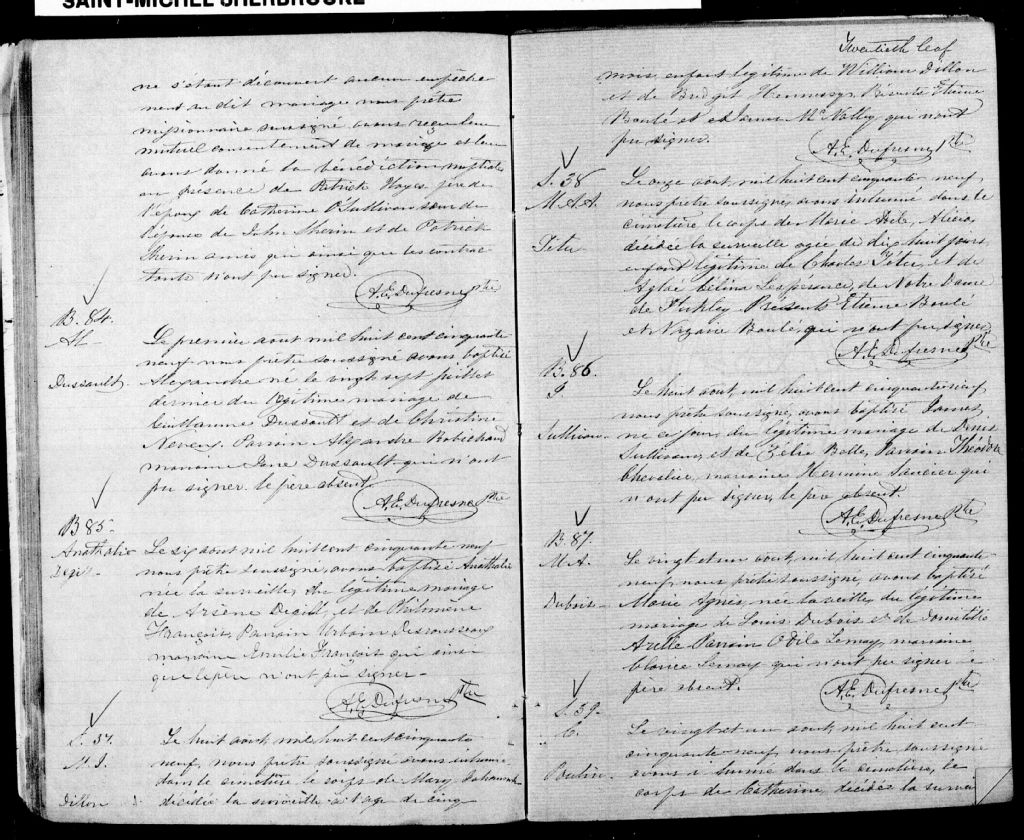 SAINT-MICHEL SHERBROOKE
ne s'étant découvert aucun empêche
ment au dit mariage nous prêtre
missionnaire soussigné avons reçu leur
mutuel consentement de mariage et leur
avons donné la bénédiction nuptiale
en présence de Patrick Hayes père de
l'époux de Catherine O'Sullivan soeur de
l'épouse de John Sherin et de Patrick
Sherin amis qui ainsi que les contrac
tants n'ont pu signer.
A.E. Dufresne Ptre
B. 84.
Al
Dussault
Le premier aout mil huit cent cinquante
neuf nous prêtre soussigné avons baptisé
Alexandre né le vingt sept juillet
dernier du légitime mariage de
Guillaume Dussault et de Christine
Parrain Alexandre Robichaud
marraine Jane Dussault qui n'ont
pu signer. le père absent.
A.E. Dufresne Ptre
B 85-
Anathalie
Le six aout mil huit cent cinquante neuf
nous prêtre soussigné, avons baptisé Anathalie
née la surveille, du légitime mariage
de Arsène et de Philomène
François, Parrain Urbain Desrousseau
marraine Emilie François qui ainsi
que le père n'ont pu signer-
A.E. Dufresne Ptre
S. 37.
M. J.
Dillon
Le huit aout, mil huit cent cinquante
neuf, nous prêtre soussigné avons inhumé
dans le cimetière le corps de Mary Johannah
décédée la surveille a l'age de cinq
Twentieth leaf
mois, enfant légitime de William Dillon
et de Bridget Hennessy, Présents Etienne
Boulé et et James McNolly qui n'ont
pu signer.
A.E. Dufresne Ptre
S. 38
M. A. A.
Teter
Le onze aout, mil huit cent cinquante neuf,
nous prêtre soussigné, avons inhumé dans le
cimetière le corps de Marie Alicia,
décédée la surveille agée de dix huit jours,
enfant légitime de Charles Teter, et de
Aglaé Célina Lespérance, de Notre Dame
de Présents Etienne Boulé
et Nazaire Boulé, qui n'ont pu signer
A.E. Dufresne Ptre
B. 86.
J.
Sullivan
Le huit aout, mil huit cent cinquante neuf,
nous prêtre soussigné, avons baptisé James,
né ce jour, du légitime mariage de Denis
Sullivan, et de Zélie Belle, Parrain Théodore
Chevalier, marraine Hermine Saucier qui
n'ont pu signer, le père absent.
A.E. Dufresne Ptre
B. 87
M. A.
Dubois-
Le vingt et un aout, mil huit cent cinquante
neuf, nous prêtre soussigné, avons baptisé
Marie Agnès, née la veille, du légitime
mariage de Louis Dubois et de Domitilde
Parrain Odilo Lemay, marraine
Lemay qui n'ont pu signer le
père absent.
A.E. Dufresne Ptre
S. 39-
C.
Poulin
Le vingt et un aout, mil huit cent
cinquante neuf, nous prêtre, soussigné
avons inhumé dans le cimetière, le
corps de Catherine, décédée la survei